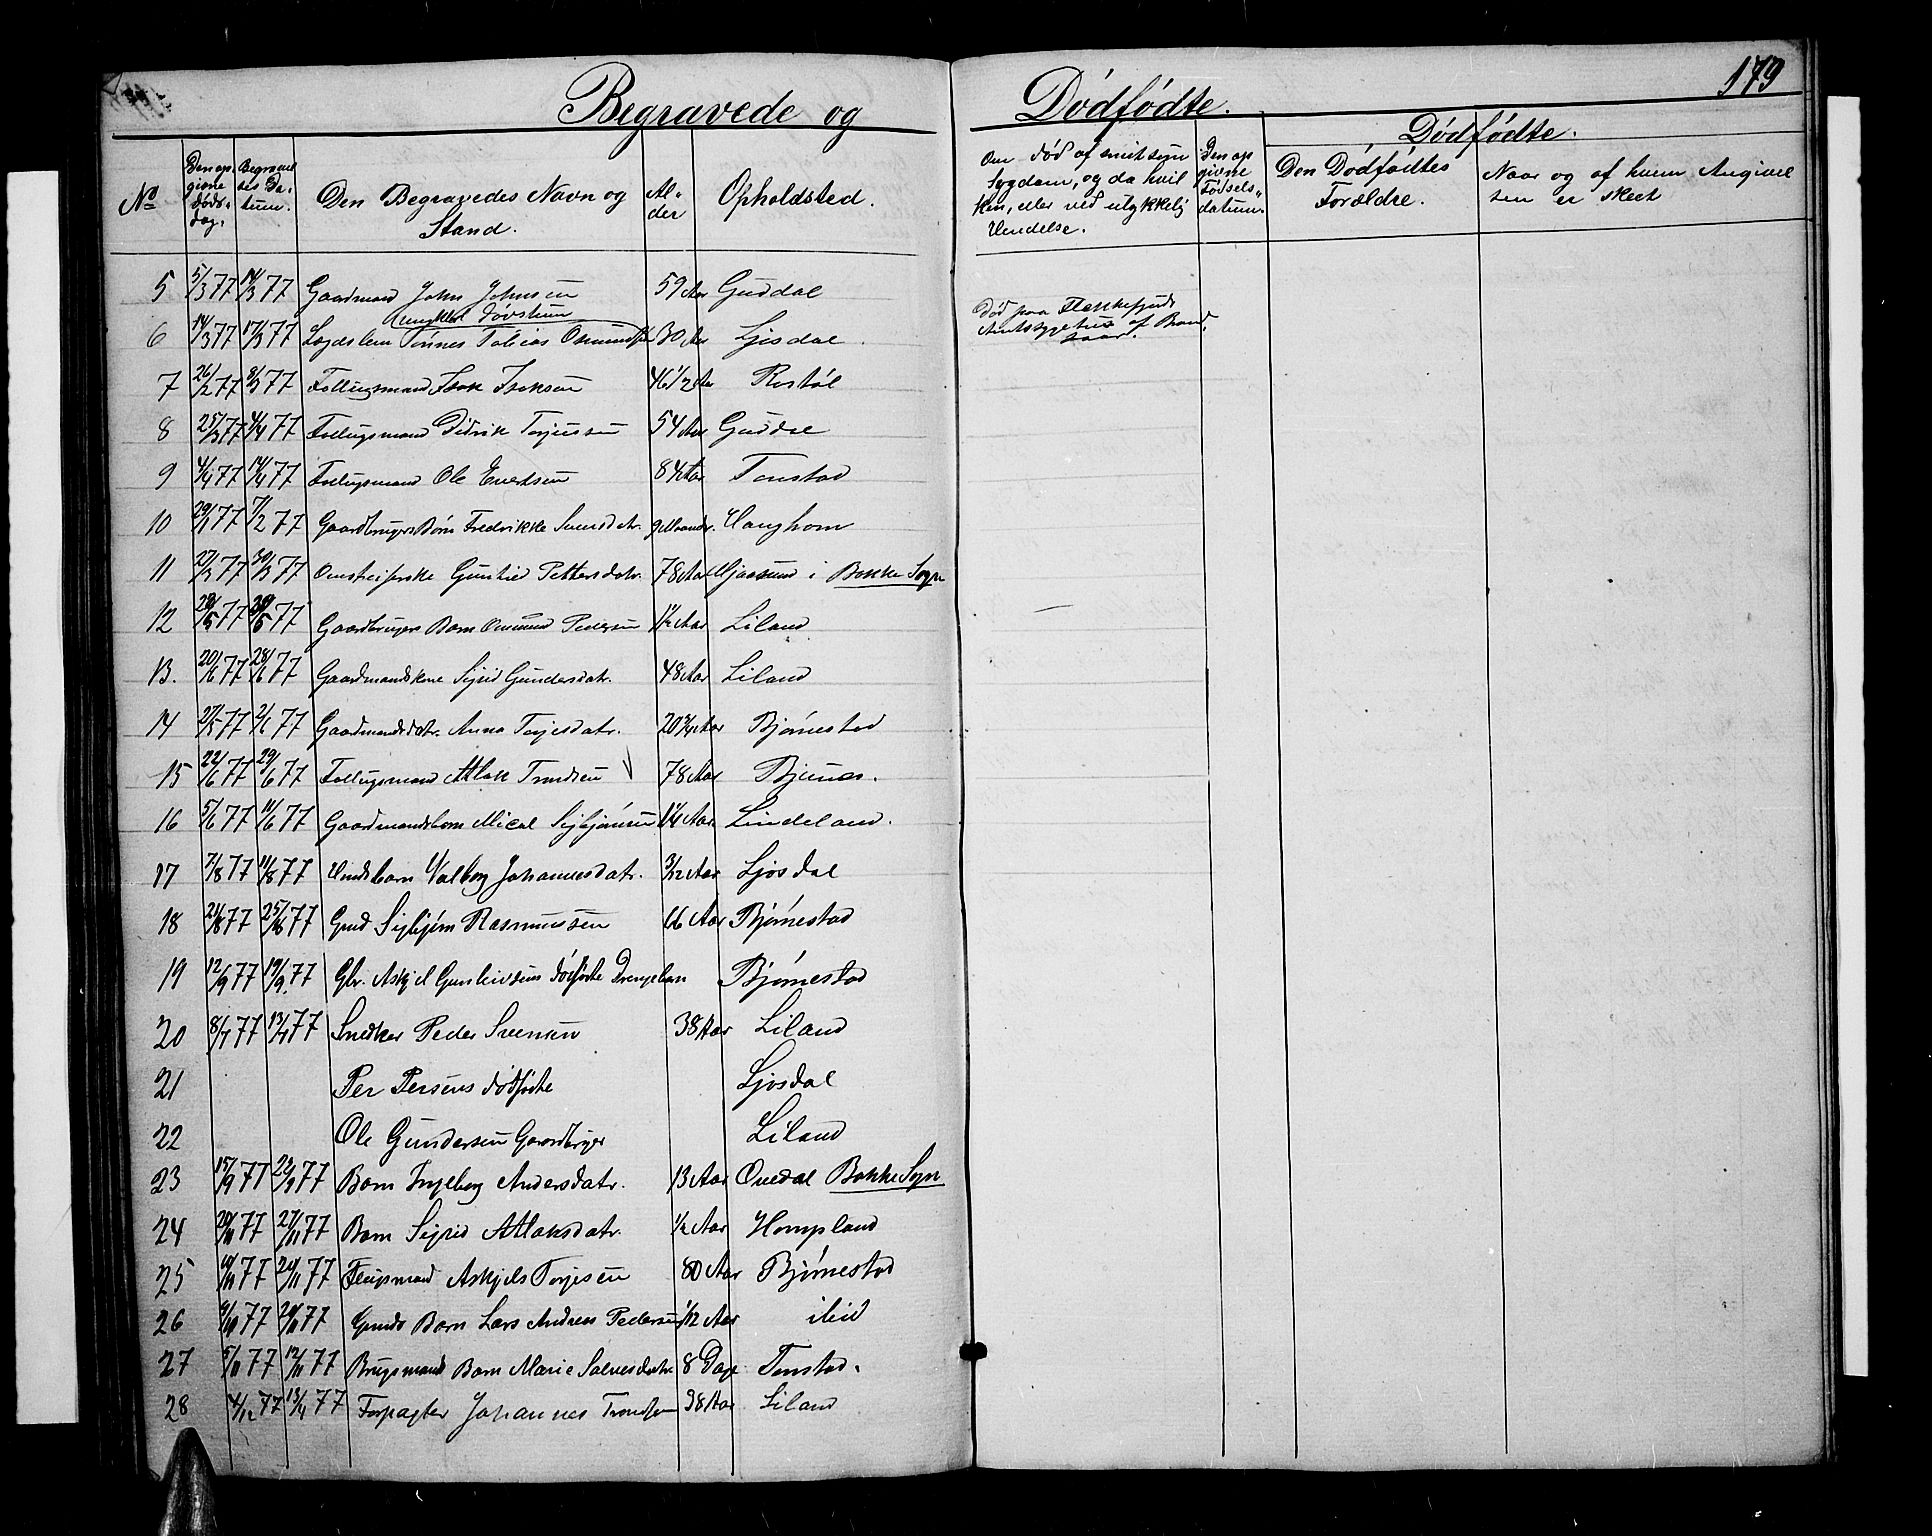 179
Begravede og Dödfödte.
Dödfödte.
No
Den op-
givne
Döds-
dag.
Begravel
ses Da-
tum.
Den Begravedes Navn og
Stand.
Al-
der
Opholdsted.
Om död af smitsom
Sygdom, og da hvil
ken, eller ved ulykkelig
Hendelse.
Den op
givne
Födsels-
datum.
Den Dödfödtes
Forældre.
Naar og af hvem Angivel
sen er skeet
5 5/3 77 14/3 77 Gaardmand John Johnsen 59 Aar Guddal
Ungkarl Dövstum
6 14/3 77 17/3 77 Lægdslem Tönnes Tobias Osmundsen 30 Aar Ljosdal
Död paa Flekkefjords
Amtssygehus af Brand
saar.
7 26/2 77 8/3 77 Follugsmand Isak Isaksen 46 1/2 Aar Rostöl
8 25/3 77 4/4 77 Follugsmand Didrik Torjussen 54 Aar Guddal
9 4/4 77 14/4 77 Follugsmand Ole Evertsen 84 Aar Tonstad
10 29/1 77 7/2 77 Gaardbrugers Börn Fredrikke Svensdatr. 9 Maander. Haughom
11 27/3 77 30/3 77 Gunhild Pettersdatr. 78 Aar i Bakke Sogn
12 77 77 Gaardbrugers Barn Osmund Pedersen 1 1/2 Aar Liland
13. 20/6 77 28/6 77 Gaardmandskone Sigrid Gundersdatr. 48 Aar Liland
14 27/5 77 2/6 77 Gaardmandsdatr. Anna Torjesdatr. 20 3/4 Aar Björnestad
15 22/6 77 29/6 77 Follugsmand Atlak Trondsen 78 Aar Bjunes.
16 5/6 77 11/6 77 Gaardmandsbarn Mical Sigbjörnsen 1 1/4 Aar Lindeland.
17 7/8 77 11/8 77 Valborg Johannesdatr. 3/12 Aar Ljosdal
18 21/8 77 25/8 77 Gmd Sigbjörn Rasmussen 66 Aar Björnestad
19 12/9 77 19/9 77 Gbr. Askjel Gunleivsens dödfödte Drengebarn Björnestad
20 8/7 77 13/7 77 Snedker Peder Svensen 38 Aar Liland
21 Per Persens dödfödte Ljosdal
22 Ole Gundersen Gaardbruger Liland
23 15/9 77 22/9 77 Barn Ingeborg Andersdatr. 13 Aar Ovedal Bakke Sogn
24 20/11 77 27/11 77 Barn Sigrid Atlaksdatr. 1/2 Aar Hompland
25 77 24/11 77 Flugsmand Askjels Torjesen 80 Aar Björnestad
26 77 77 Gmds Barn Lars Andreas Pedersen 1/12 Aar
27 5/11 77 12/11 77 Brugsmand Barn Marie Salvesdatr 8 Dage Tonstad.
28 4/12 77 77 Forpagter Johannes Trondsen 38 Aar Liland